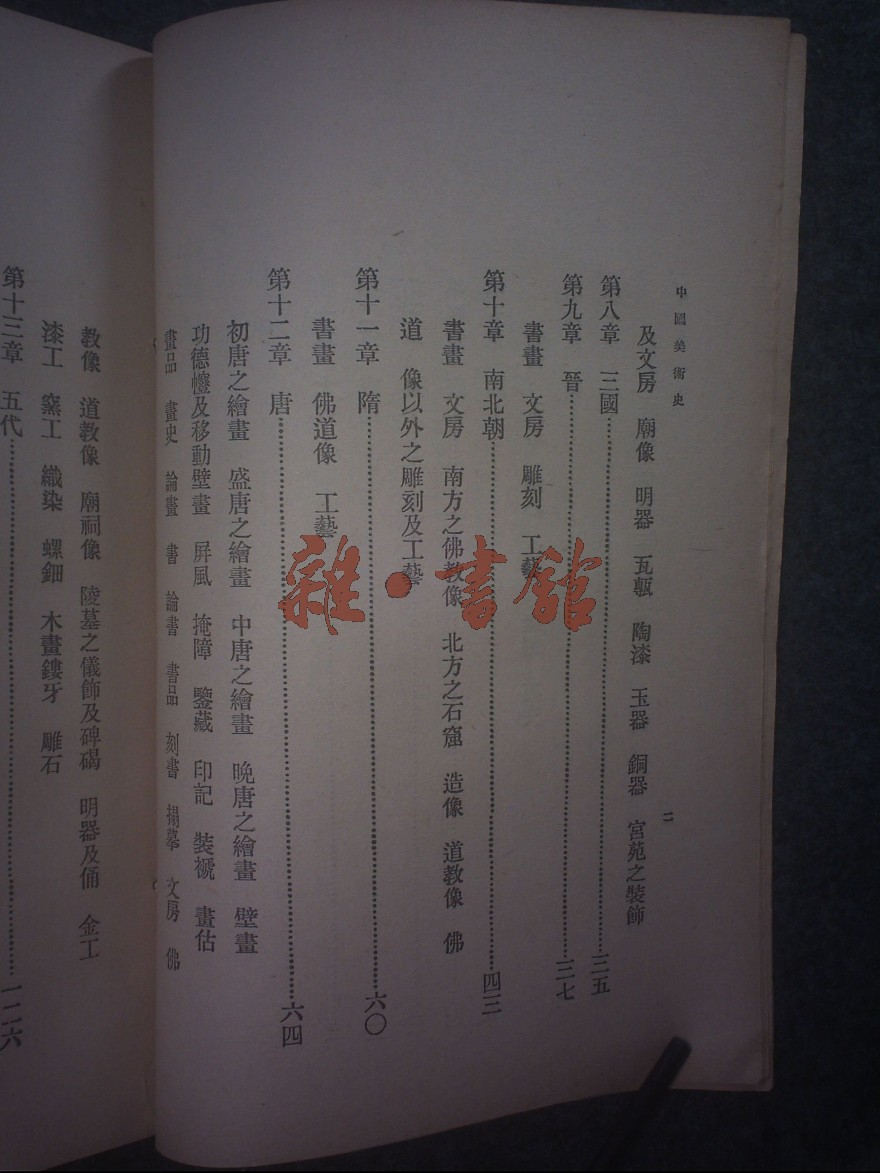 中國美術史
二
及文房 廟像 明器 瓦甎 陶漆 玉器 銅器 宮苑之裝飾
第八章 三國……三五
第九章 晉……三七
書畫 文房 雕刻 工藝
第十章 南北朝……四三
書畫 文房 南方之佛教像 北方之石窟 造像 道教像 佛
道 像以外之雕刻及工藝
第十一章 隋……六〇
書畫 佛道像 工藝
第十二章 唐……六四
初唐之繪畫 盛唐之繪畫 中唐之繪畫 晚唐之繪畫 壁畫
功德幢及移動壁畫 屏風 掩障 鑒藏 印記 裝褫 畫估
畫品 畫史 論畫 書 論書 書品 刻書 搨摹 文房 佛
教像 道教像 廟祠像 陵墓之儀飾及碑碣 明器及俑 金工
漆工 窯工 織染 螺鈿 木畫鏤牙 雕石
第十三章 五代……一二六
雜·書館